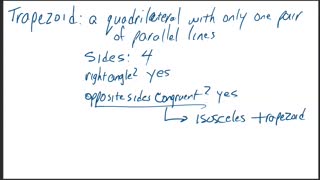 Trapezoid: a quadrilateral with only one pair
of parallel lines
Sides: 4
right angle? yes
opposite sides congruent? yes
↳ isosceles trapezoid